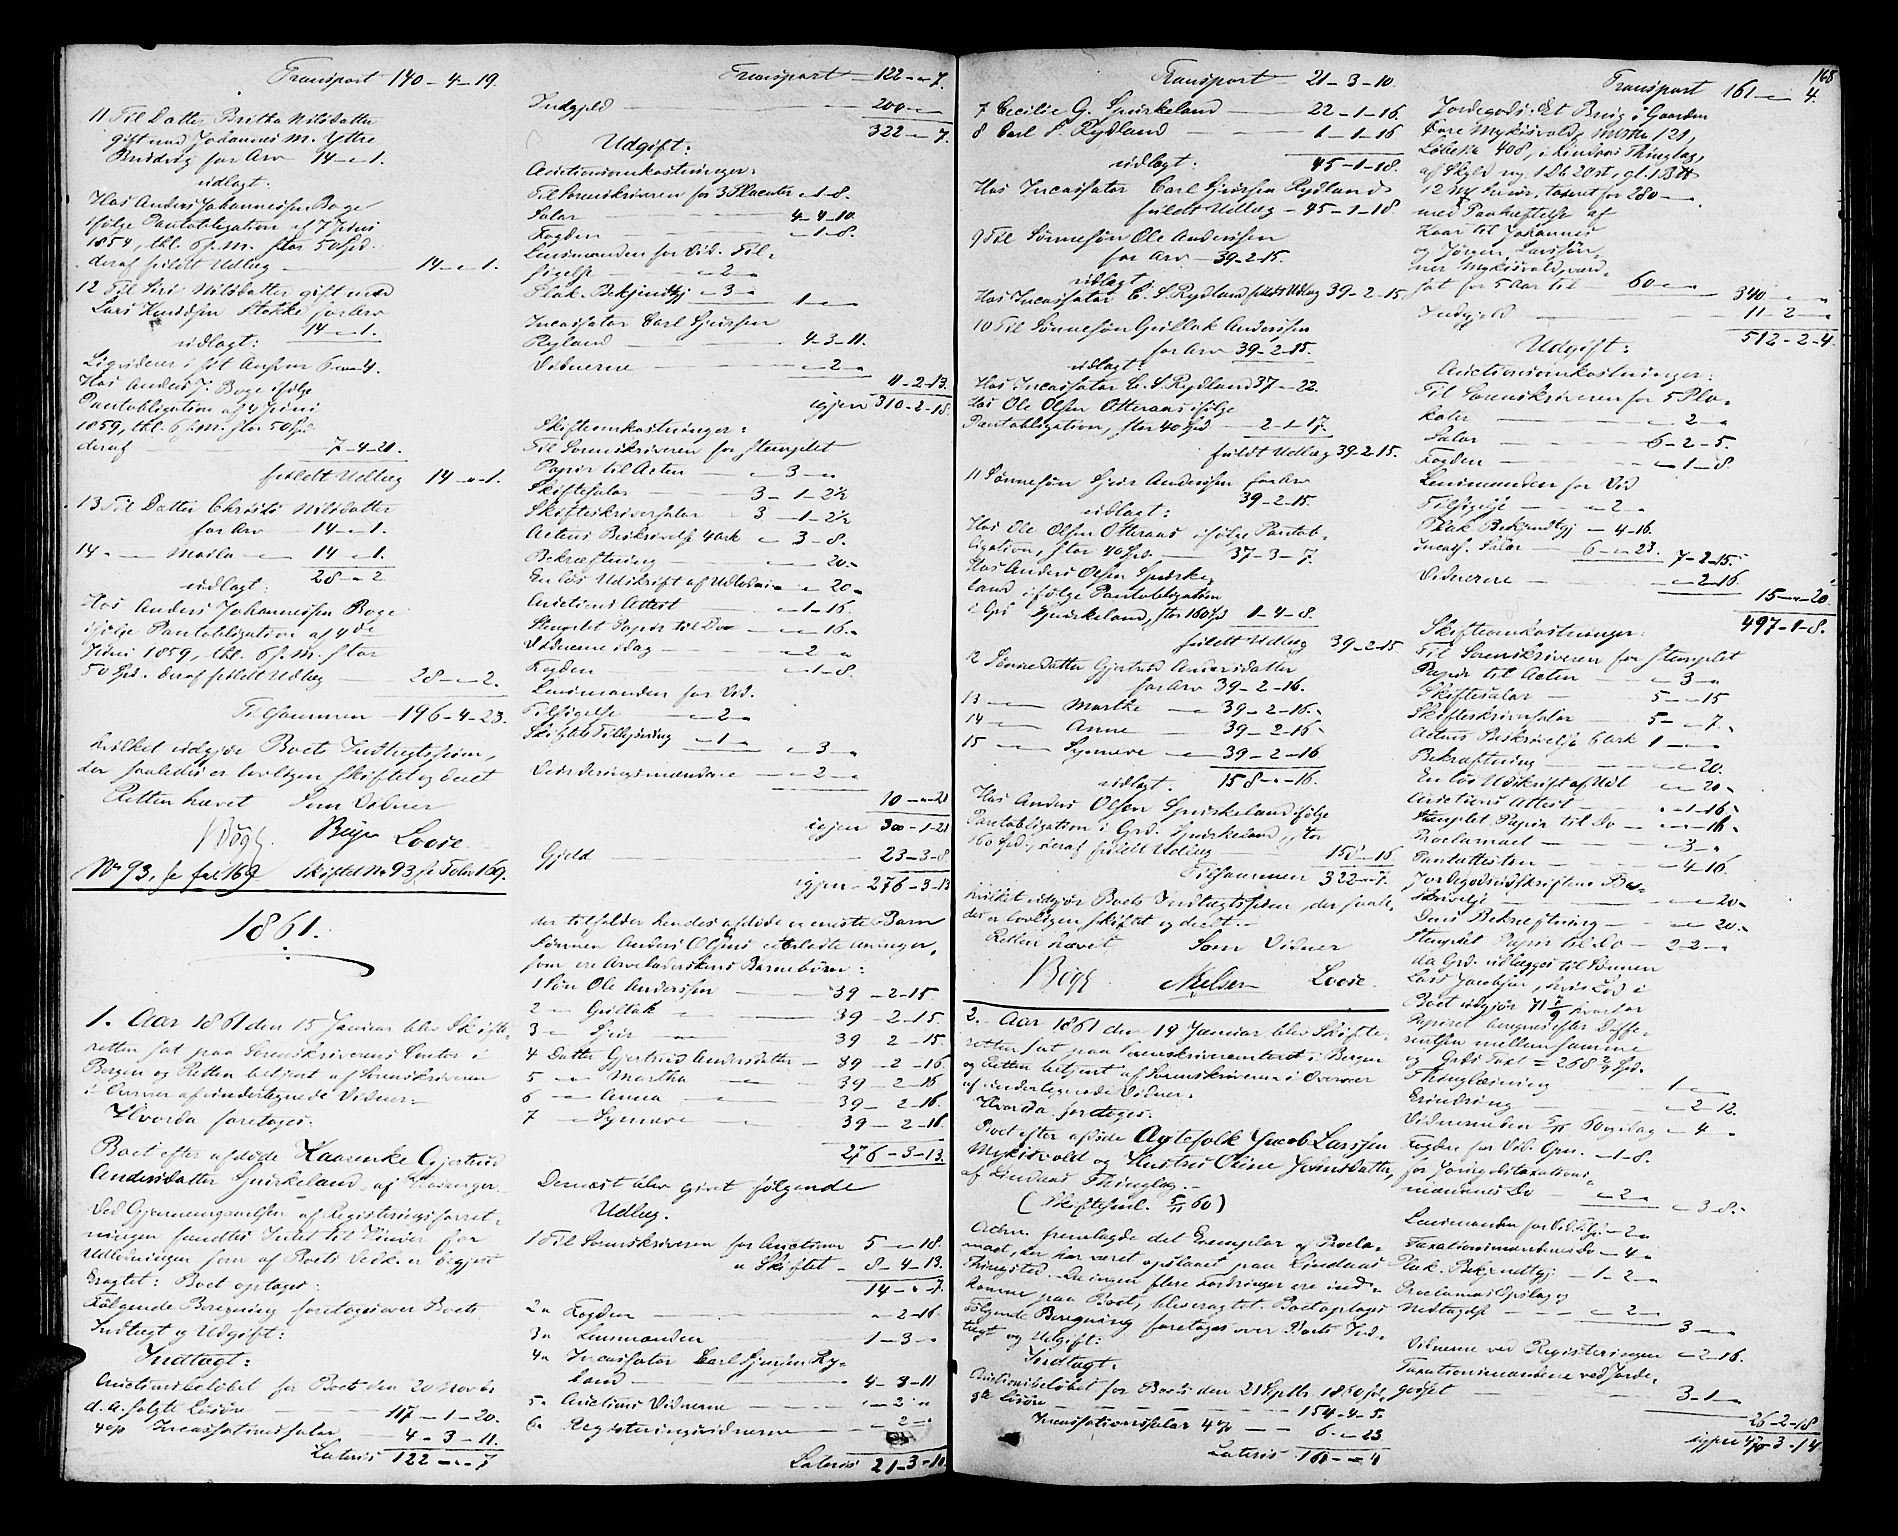 Transport 190-4-19.
11 Til Datter Britha Nilsdatter
gift med Johannes M. Yttre
for Arv 14-"-1.
udlagt:
Hos Anders Johannessen Boge
ifølge Pantobligation af 7 Juni
1854, thl. 6 f. M. stor 50 Spd
deraf fuldt Udlæg 14-"-1.
12 Til Siri Nilsdatter gift med
Lars Knudsen Stokke for Arv
14-"-1.
udlagt:
Hos Anders J. Boge ifølge
Pantobligation af 4 Juni
1859, thl. 6 f. M. stor 50 Spd
deraf 7-4-21.
fuldt Udlæg 14-"-1.
13 Til Datter Christi Nilsdatter
for Arv 14-"-1.
14 " Marta " 14-"-1.
28-"-2
udlagt:
Hos Anders Johannessen Boge
ifølge Pantobligation af 4de
Juni 1859, thl. 6 f. M. stor
50 Spd. deraf fuldt Udlæg 28-"-2.
Tilsammen 196-4-23.
hvilket udgjør Boets Indtægtssum,
der saaledes er lovligen skiftet og deelt
Retten hævet Som Vidner
Bøgh. Loose
No 93, se fol 169 Skiftet No 93 se Folio 169.
1861.
1. Aar 1861 den 15 Januar blev Skifte-
retten sat paa Sorenskriverens Contor i
Bergen og Retten betjent af Sorenskriveren
i Overvær af undertegnede Vidner.
Hvorda foretoges:
Boet efter afdøde Gjertrud
Andersdatter Spirkeland af Hosanger.
Ved Gjennemgaaelsen af Registreringsforret-
ningen fandtes Intet til Hinder for
Udlodningen som af Boets Vedk. er begjært
Eragtet: Boet optages:
Følgende Beregning foretages over Boets
Indtægt og Udgift:
Indtægt:
Auctionsbeløbet for Boets den 20 Novbr
d. A. solgte Løsøre 117-1-20.
4 op Incassationssalær 4-3-11.
Lateris 122-"-7
Transport 122-"-7.
Indgjeld 200-"-"
322-"-7.
Udgift:
Auctionsomkostninger:
Til Sorenskriveren for 3 Placater "-1-8.
Salær 4-4-10.
Fogden "-1-8.
Lensmanden for Vid. Til-
sigelse "-2-"
Plak. Bekjendtgj "-3-" 1-"-"
Incassator Carl Sjursen
Rydland 4-3-11.
Vidnerne "-2-"
11-2-13.
igjen 310-2-18.
Skifteomkostninger:
Til Sorenskriveren for stemplet
Papir til Acten "-3-"
Skiftesalær 3-1-2½
Skifteskriversalær 3-1-2½
Actens Beskrivelse 4 Ark "-3-8.
Bekræftning "-"-20.
En løs Udskrift af Udlodn "-"-20.
Auctions Attest "-1-16.
Stemplet Papir til Do "-"-16.
Vidnerne idag "-2-"
Fogden "-1-8.
Lensmanden for Vid.
Tilsigelse "-2-"
Skiftets Tillysning "-1-" "-3-"
Vurderingsmændene "-2-"
10-"-21
igjen 300-1-21
Gjeld 23-3-8.
igjen 276-3-13
der tilfalder hendes afdøde eneste Barn
Sønnen Anders Olsens efterladte Unger,
som ere Arveladerskens Barnebørn:
1 Søn Ole Anderssen 39-2-15
2 " Guttak " 39-2-15.
3 " Sjur " 39-2-15
4 Datter Gjertrud Andersdatter 39-2-16
5 " Martha " 39-2-16
6 " Anna " 39-2-16.
7 " Synneve 39-2-16
276-3-13.
Dernæst blev givet følgende
Udlæg.
1 Til Sorenskriveren for Auctionen 5-"-18.
" Skiftet 8-4-13.
14-"-7.
2 " Fogden "-2-16.
3 " Lensmanden 1-3-"
4 " Incassator Carl Sjursen Ry-
land 4-3-11
5 " Auctions Vidnerne "-2-"
6 " Registreringsvidnerne "-2-"
Lateris 21-3-10.
Transport 21-3-10.
7 Cecilie G. Spirkeland 22-1-16.
8 Carl S Rydland 1-1-16
45-1-18.
udlagt:
Hos Incassator Carl Sjursen Rydland
fuldt Udlæg 45-1-18.
9 Til Sønnesøn Ole Anderssen
for Arv 39-2-15.
udlagt
Hos Incassator C. S. Rydland fuldt Udlæg 39-2-15
10 Til Sønnesøn Guttak Anderssen
for Arv 39-2-15.
udlagt:
Hos Incassator C. S. Rydland 37-"-22
Hos Ole Olsen Otteraas ifølge
Pantobligation, stor 40 Spd 2-1-17.
fuldt Udlæg 39-2-15.
11 Sønnesøn Sjur Anderssen for Arv
39-2-15.
udlagt:
Hos Ole Olsen Otteraas ifølge Pantob-
ligation, stor 40 Spd. 37-3-7.
Hos Anders Olsen Spirke-
land ifølge Pantobligation
i Grd Spirkeland, stor 160 Spd 1-4-8.
fuldt Udlæg 39-2-15
12 Sønnedatter Gjertrud Andersdatter
for Arv 39-2-16.
13 " Marthe " 39-2-16.
14 " Anne 39-2-16
15 " Synneve 39-2-16
158-"-16.
udlagt.
Hos Anders Olsen Spirkeland ifølge
Pantobligation i Grd. Spirkeland, stor
160 Spd., deraf fuldt Udlæg 158-"-16
Tilsammen 322-"-7.
hvilket udgjør Boets Indtægtssum, der saale-
des er lovligen skiftet og deelt.
Retten hævet Som Vidner
Bøgh Nielsen Loose.
2. Aar 1861 den 19 Januar blev Skifte-
retten sat paa Sorenskrivercontoret i Bergen
og Retten betjent af Sorenskriveren i Overvær
af undertegnede Vidner.
Hvorda foretoges:
Boet efter afdøde Ægtefolk Jacob Larssen
Mykisvold og Hustru Oline Jonsdatter,
af Lindaas Thinglag.
(Skiftesml. 5/11 60)
Acten fremlagde det Exemplar af Procla-
maet, der har været opslaaet paa Lindaas
Thingsted. Da ingen flere Fordringer ere ind-
komne paa Boet, blev eragtet. Boet optages
Følgende Beregning foretages over Boets Ind-
tægt og Udgift:
Indtægt.
Auctionsbeløbet for Boets den 21 Septbr 1860 sol-
gte Løsøre 154-4-5.
Incassationssalær 4 op 6-"-23
Lateris 161-"-4
168
Transport 161-"-4.
Jordegods: Et Brug i Gaarden
Mykisvold, Matr No 121,
Løbe No 408, i Lindaas Thinglag,
af Skyld ny 1 Db 20 st, gl. 1 B tt
12 taxeret for 280-"-".
med Paaheftelse af
Kaar til Johannes
og Jørgen Larssøn-
ner Mykisvold, værd-
sat for 5 Aar til 60-"-"
340-"-"
Indgjeld 11-2-"
512-2-4.
Udgift:
Auctionsomkostninger:
Til Sorenskriveren for 5 Pla-
kater "-2-"
Salær 6-2-5.
Fogden "-1-8.
Lensmanden for Vid
Tilsigelse "-2-"
Plak Bekjendtgj "-4-16.
Incass. Salær 6-"-23. 7-2-15.
Vidnerne "-2-16.
15-"-20.
497-1-8.
Skifteomkostninger:
Til Sorenskriveren for stemplet
Papir til Acten "-3-"
Skiftesalær 5-"-15
Skifteskriversalær 5-"-7.
Actens Beskrivelse 6 Ark 1-"-"
Bekræftning "-"-20.
En løs Udskrift af Udl "-"-20.
Auctions Attest "-1-16.
Stemplet Papir til Do "-"-16.
Proclamaet "-3-"
Pantattesten "-4-16.
Jordegodsudskriftens Be-
skrivelse "-"-20.
Dens Bekræftning "-"-20.
Stemplet Papir til Do 2-2-"
da Grd. udlægges til Sønnen
Lars Jacobsen, hvis Lod i
Boet udgjør 71 7/9 hvorfor
Papiret beregnes efter Diffe-
rentsen mellem samme
og Grds Taxt = 268 2/9 Spd.
Thinglæsning 1-"-"
Erindring "-2-12.
Vidnerne den 5/11 60 og idag "-4-"
Fogden for Vid. Opn. "-1-8.
for Jordegodstaxations-
mændenes Do "-2-" "-3-8.
Lensmanden for Vid. Tils. "-2-"
Taxationsmændenes Do "-4-"
Plak. Bekjendtgj 1-2-"
Proclamas Opslag og
Nedtagelse "-2-"
3-"-"
Vidnerne ved Registreringen "-2-16.
Taxationsmændene ved Jorde-
godset 3-1-"
26-2-18
igjen 470-3-14